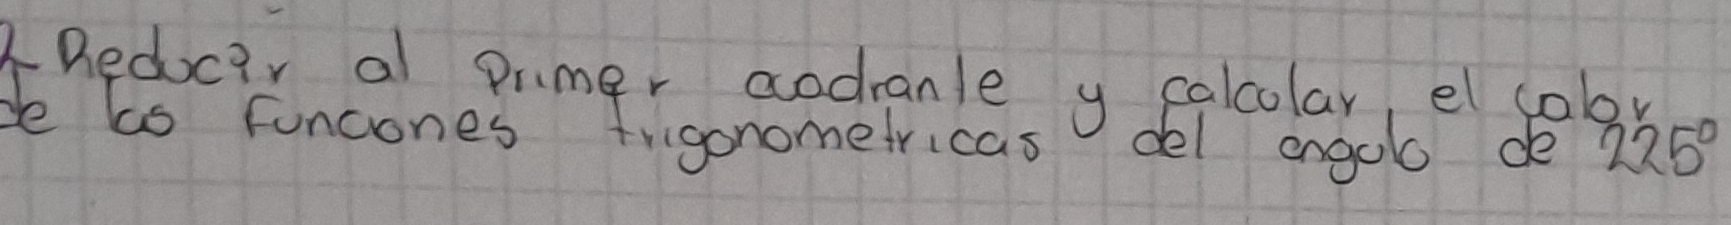 Reducir al Primer cuadrante y calcular el valor
de las Funciones trigonometricas del angulo de 225°